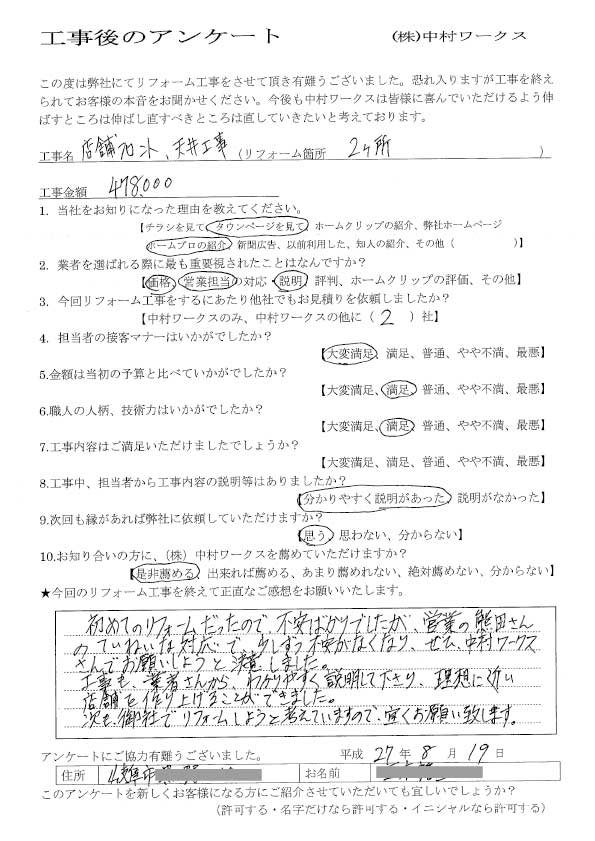 工事後のアンケート
(株)中村ワークス
この度は弊社にてリフォーム工事をさせて頂き有難うございました。恐れ入りますが工事を終え
られてお客様の本音をお聞かせください。今後も中村ワークスは皆様に喜んでいただけるよう伸
ばすところは伸ばし直すべきところは直していきたいと考えております。
工事名 店舗フロント、天井工事 (リフォーム箇所 2ヶ所 )
工事金額 478,000
1. 当社をお知りになった理由を教えてください。
【チラシを見て、タウンページを見て、ホームクリップの紹介、弊社ホームページ
ホームプロの紹介、新聞広告、以前利用した、知人の紹介、その他( )】
2. 業者を選ばれる際に最も重要視されたことはなんですか?
【価格、営業担当の対応・説明、評判、ホームクリップの評価、その他】
3. 今回リフォーム工事をするにあたり他社でもお見積りを依頼しましたか?
【中村ワークスのみ、中村ワークスの他に( 2 )社】
4. 担当者の接客マナーはいかがでしたか?
【大変満足、満足、普通、やや不満、最悪】
5.金額は当初の予算と比べていかがでしたか?
【大変満足、満足、普通、やや不満、最悪】
6.職人の人柄、技術力はいかがでしたか?
【大変満足、満足、普通、やや不満、最悪】
7.工事内容はご満足いただけましたでしょうか?
【大変満足、満足、普通、やや不満、最悪】
8.工事中、担当者から工事内容の説明等はありましたか?
【分かりやすく説明があった、説明がなかった】
9.次回も縁があれば弊社に依頼していただけますか?
【思う、思わない、分からない】
10.お知り合いの方に、(株)中村ワークスを薦めていただけますか?
【是非薦める、出来れば薦める、あまり薦めれない、絶対薦めない、分からない】
★今回のリフォーム工事を終えて正直なご感想をお願いいたします。
初めてのリフォームだったので、不安ばかりでしたが、営業の熊田さん
のていねいな対応で、少しずつ不安がなくなり、ぜひ、中村ワークス
さんでお願いしようと決意しました。
工事も、業者さんから、わかりやすく説明して下さり、理想に近い
店舗を作り上げることができました。
次も、御社でリフォームしようと考えていますので、宜しくお願い致します。
アンケートにご協力有難うございました。 平成 27 年 8 月 19 日
住所 岐阜市 お名前
このアンケートを新しくお客様になる方にご紹介させていただいても宜しいでしょうか?
(許可する・名字だけなら許可する・イニシャルなら許可する)